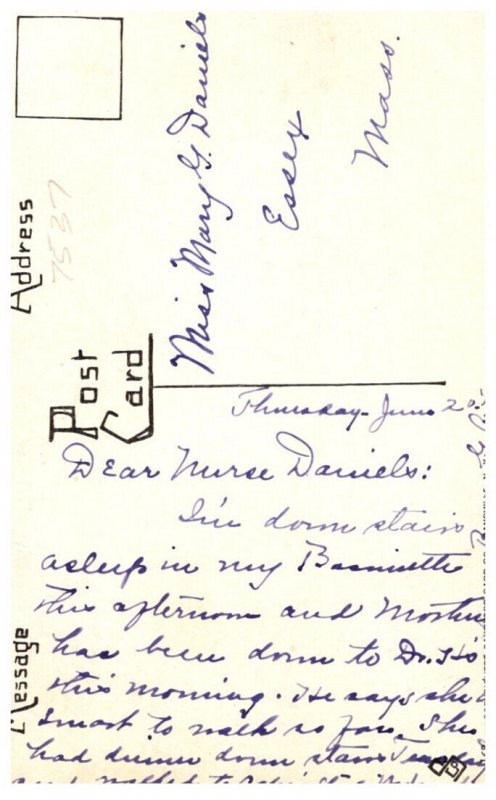 Address
7537
Post
Card
Miss Mary G. Daniels
Essex
Mass.
Thursday June 20
Dear Nurse Daniels:
I'm down stairs
asleep in my Bassinette
this afternoon and
has been down to Dr. H's
this morning. He says she
smart to walk so far. She
had dinner down stairs
and walked to
Message